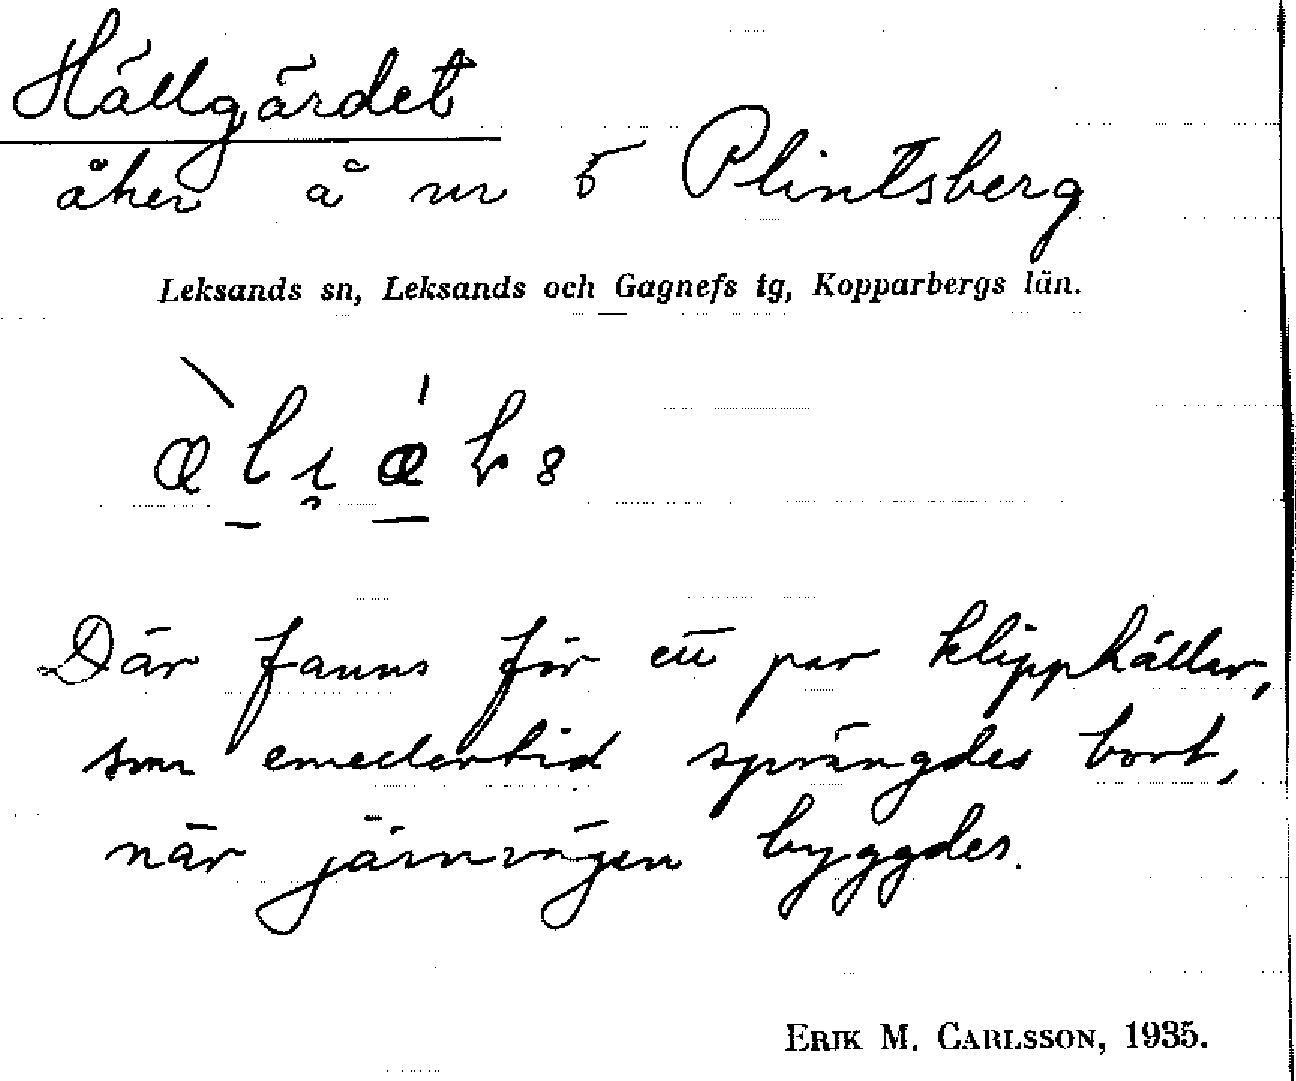 Hällgärdet
åker å nr 5 Plintsberg
Leksands sn, Leksands och Gagnefs tg, Kopparbergs län.
Där fanns för ett par klipphällar,
som emellertid sprängdes bort,
när järnvägen byggdes.
ERIK M. CARLSSON, 1935.